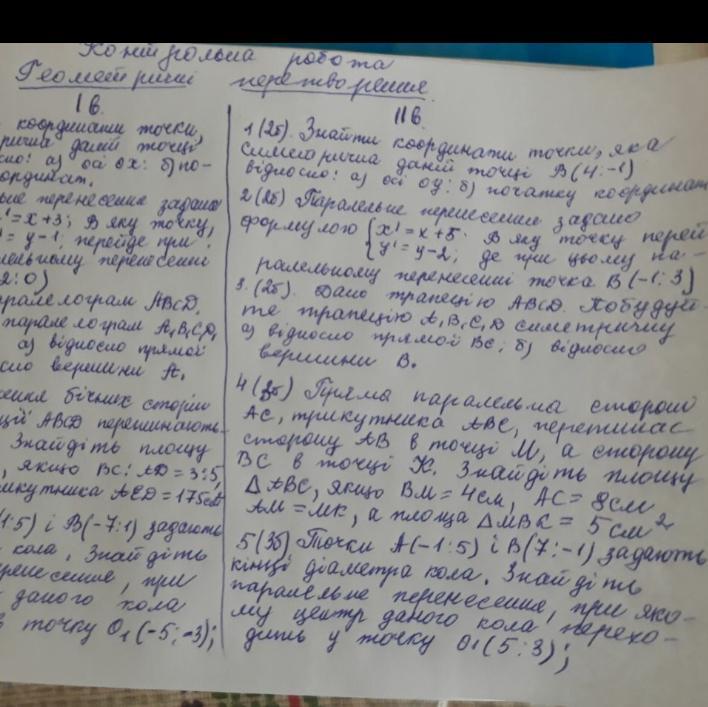 Контрольна робота
Геометричні перетворення
І в.
координати точки,
рична даній точці
сно: а) осі ОХ: б) по-
ординат.
ьне перенесення задано
х' = х + 3; В яку точку,
' = у - 1; перейде при
лельному перенесенні
2:0)
аралелограм ABCD.
паралелограм A₁B₁C₁D₁
а) відносно прямої
сно вершини А.
ження бічних сторін
ції ABCD перетинають
Знайдіть площу
, якщо BC:AD = 3:5,
рикутника AED = 175см²
1:5) і В(-7:1) задають
кола. Знайдіть
ренесення, при
даного кола
в точку О₁(-5:-3);
ІІ в.
1 (2б). Знайти координати точки, яка
симетрична даній точці В(4:-1)
відносно: а) осі ОУ: б) початку координат
2 (2б) Паралельне перенесення задано
формулою { х' = х + 5. В яку точку перей
{ у' = у - 2; де при цьому па-
ралельному перенесенні точка В(-1:3)
3. (2б). Дано трапецію ABCD. Побудуй-
те трапецію A₁B₁C₁D симетричну
а) відносно прямої BC; б) відносно
вершини В.
4 (3б) Пряма паралельна стороні
АС, трикутника АВС, перетинає
сторону АВ в точці М, а сторону
ВС в точці К. Знайдіть площу
ΔАВС, якщо ВМ = 4см, АС = 8см
АМ = МК, а площа ΔМВК = 5см²
5 (3б) Точки А(-1:5) і В(7:-1) задають
кінці діаметра кола. Знайдіть
паралельне перенесення, при яко-
му центр даного кола перехо-
дить у точку О₁(5:3);